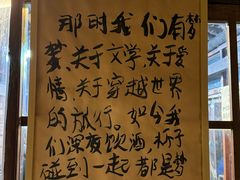 那时我们有梦
梦,关于文学,关于爱
情,关于穿越世界
的旅行。如今我
们深夜饮酒,杯子
碰到一起,都是梦